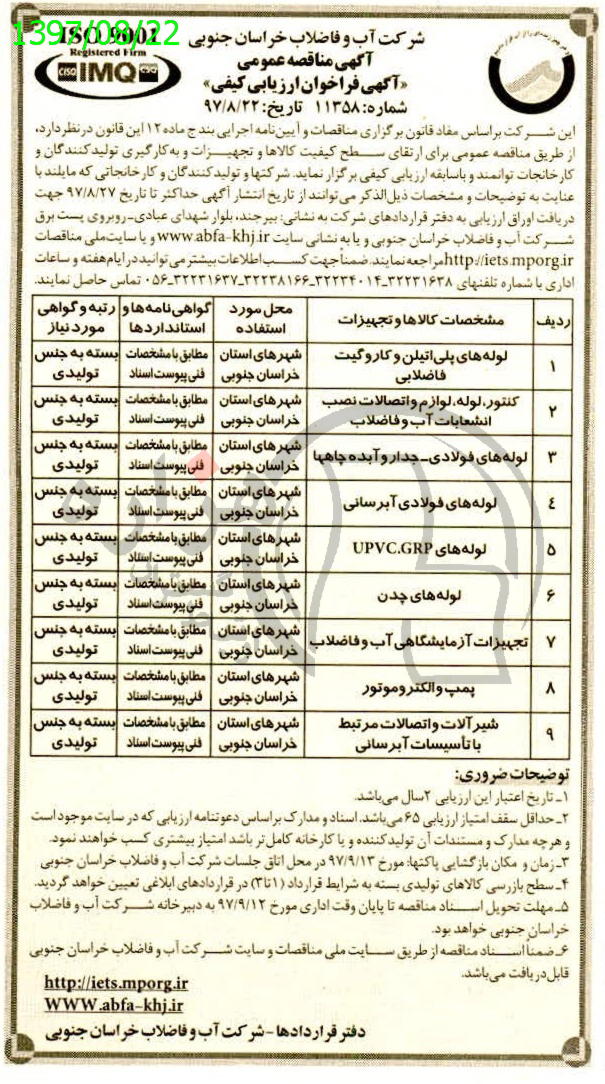 1397/08/22
ISO 9001
Registered Firm
CISQ IMQ CSQ
شرکت آب و فاضلاب خراسان جنوبی
آگهی مناقصه عمومی
«آگهی فراخوان ارزیابی کیفی»
شماره: ۱۱۳۵۸ تاریخ: ۹۷/۸/۲۲
این شرکت براساس مفاد قانون برگزاری مناقصات و آیین‌نامه اجرایی بند ج ماده ۱۲ این قانون در نظر دارد،
از طریق مناقصه عمومی برای ارتقای سطح کیفیت کالاها و تجهیزات و به‌کارگیری تولیدکنندگان و
کارخانجات توانمند و باسابقه ارزیابی کیفی برگزار نماید. شرکتها و تولیدکنندگان و کارخانجاتی که مایلند با
عنایت به توضیحات و مشخصات ذیل‌الذکر می‌توانند از تاریخ انتشار آگهی حداکثر تا تاریخ ۹۷/۸/۲۷ جهت
دریافت اوراق ارزیابی به دفتر قراردادهای شرکت به نشانی: بیرجند، بلوار شهدای عبادی-روبروی پست برق
شرکت آب و فاضلاب خراسان جنوبی و یا به نشانی سایت www.abfa-khj.ir و یا سایت ملی مناقصات
http://iets.mporg.ir مراجعه نمایند. ضمناً جهت کسب اطلاعات بیشتر می‌توانید در ایام هفته و ساعات
اداری با شماره تلفنهای ۳۲۲۳۱۶۳۸-۳۲۲۳۴۰۱۴-۳۲۲۳۸۱۶۶-۳۲۲۳۱۶۳۷-۰۵۶ تماس حاصل نمایند.
ردیف مشخصات کالاها و تجهیزات محل مورد استفاده گواهی‌نامه‌ها و استانداردها رتبه و گواهی مورد نیاز
۱ لوله‌های پلی‌اتیلن و کاروگیت فاضلابی شهرهای استان خراسان جنوبی مطابق با مشخصات فنی پیوست اسناد بسته به جنس تولیدی
۲ کنتور، لوله، لوازم و اتصالات نصب انشعابات آب و فاضلاب شهرهای استان خراسان جنوبی مطابق با مشخصات فنی پیوست اسناد بسته به جنس تولیدی
۳ لوله‌های فولادی-جدار و آبده چاهها شهرهای استان خراسان جنوبی مطابق با مشخصات فنی پیوست اسناد بسته به جنس تولیدی
۴ لوله‌های فولادی آبرسانی شهرهای استان خراسان جنوبی مطابق با مشخصات فنی پیوست اسناد بسته به جنس تولیدی
۵ لوله‌های UPVC.GRP شهرهای استان خراسان جنوبی مطابق با مشخصات فنی پیوست اسناد بسته به جنس تولیدی
۶ لوله‌های چدن شهرهای استان خراسان جنوبی مطابق با مشخصات فنی پیوست اسناد بسته به جنس تولیدی
۷ تجهیزات آزمایشگاهی آب و فاضلاب شهرهای استان خراسان جنوبی مطابق با مشخصات فنی پیوست اسناد بسته به جنس تولیدی
۸ پمپ و الکتروموتور شهرهای استان خراسان جنوبی مطابق با مشخصات فنی پیوست اسناد بسته به جنس تولیدی
۹ شیرآلات و اتصالات مرتبط با تأسیسات آبرسانی شهرهای استان خراسان جنوبی مطابق با مشخصات فنی پیوست اسناد بسته به جنس تولیدی
توضیحات ضروری:
۱-تاریخ اعتبار این ارزیابی ۲سال می‌باشد.
۲-حداقل سقف امتیاز ارزیابی ۶۵ می‌باشد. اسناد و مدارک براساس دعوتنامه ارزیابی که در سایت موجود است
و هرچه مدارک و مستندات آن تولیدکننده و یا کارخانه کامل‌تر باشد امتیاز بیشتری کسب خواهند نمود.
۳-زمان و مکان بازگشایی پاکتها: مورخ ۹۷/۹/۱۳ در محل اتاق جلسات شرکت آب و فاضلاب خراسان جنوبی
۴-سطح بازرسی کالاهای تولیدی بسته به شرایط قرارداد (۱تا۳) در قراردادهای ابلاغی تعیین خواهد گردید.
۵-مهلت تحویل اسناد مناقصه تا پایان وقت اداری مورخ ۹۷/۹/۱۲ به دبیرخانه شرکت آب و فاضلاب
خراسان جنوبی خواهد بود.
۶-ضمناً اسناد مناقصه از طریق سایت ملی مناقصات و سایت شرکت آب و فاضلاب خراسان جنوبی
قابل دریافت می‌باشد.
http://iets.mporg.ir
WWW.abfa-khj.ir
دفتر قراردادها - شرکت آب و فاضلاب خراسان جنوبی